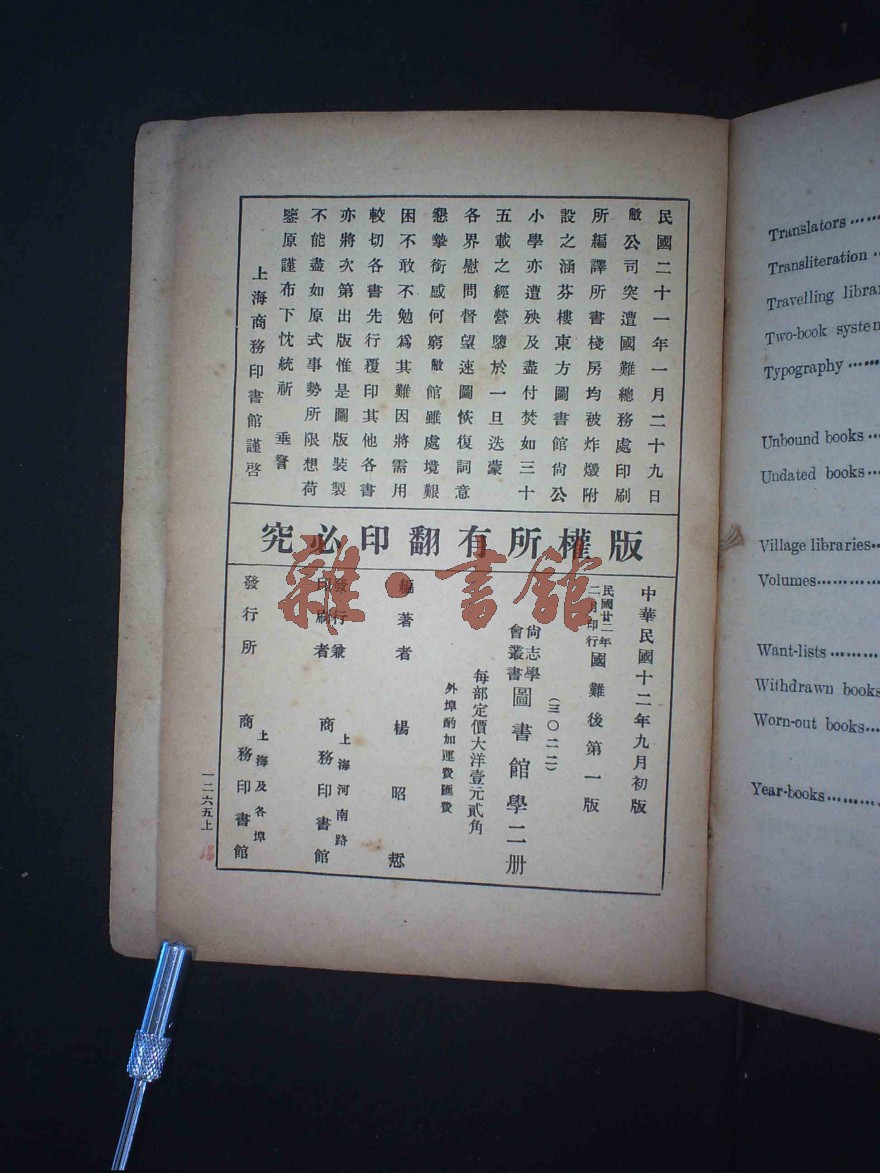 民國二十一年一月二十九日
敝公司突遭國難總務處印刷
所編譯所書棧房均被炸燬附
設之涵芬樓東方圖書館尙公
小學亦遭殃及盡付焚如三十
五載之經營隳於一旦迭蒙
各界慰問督望速圖恢復詞意
懇摯銜感何窮敝館雖處境艱
困不敢不勉爲其難因將需用
較切各書先行覆印其他各書
亦將次第出版惟是圖版裝製
不能盡如原式事勢所限想荷
鑒原謹布下忱統祈 垂詧
上海商務印書館謹啓
版權所有翻印必究
中華民國十二年九月初版
民國廿二年二月印行國難後第一版
(三〇二二)
尙志學會叢書圖書館學二册
每部定價大洋壹元貳角
外埠酌加運費匯費
編著者 楊昭悊
發行兼印刷者 上海河南路 商務印書館
發行所 上海及各埠 商務印書館
一二六五上
雜·書館
Translators
Transliteration
Travelling librar
Two-book system
Typography
Unbound books
Undated books
Village libraries
Volumes
Want-lists
Withdrawn books
Worn-out books
Year-books